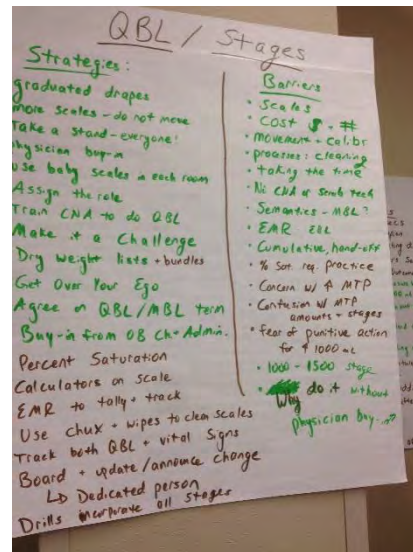 QBL / Stages
Strategies:
graduated drapes
more scales - do not move
Take a stand - everyone!
physician buy-in
use baby scales in each room
Assign the role
Train CNA to do QBL
Make it a Challenge
Dry weight lists + bundles
Get Over Your Ego
Agree on QBL/MBL term
Buy-in from OB Ch + Admin.
Percent Saturation
Calculators on scale
EMR to tally + track
Use chux + wipes to clean scales
Track both QBL + vital signs
Board + update/announce change
↳ Dedicated person
Drills incorporate all stages
Barriers
• Scales
• COST $ • #
• movement + calibr
• processes: cleaning
• taking the time
• No CNA or Scrub tech
• Semantics - MBL?
• EMR EBL
• Cumulative, hand-off
• % Sat. req. practice
• Concern w/ ↑ MTP
• Confusion w/ MTP
amounts + stages
• fear of punitive action
for ↑ 1000 mL
• 1000 - 1500 stage
• Why do it without
physician buy-in?